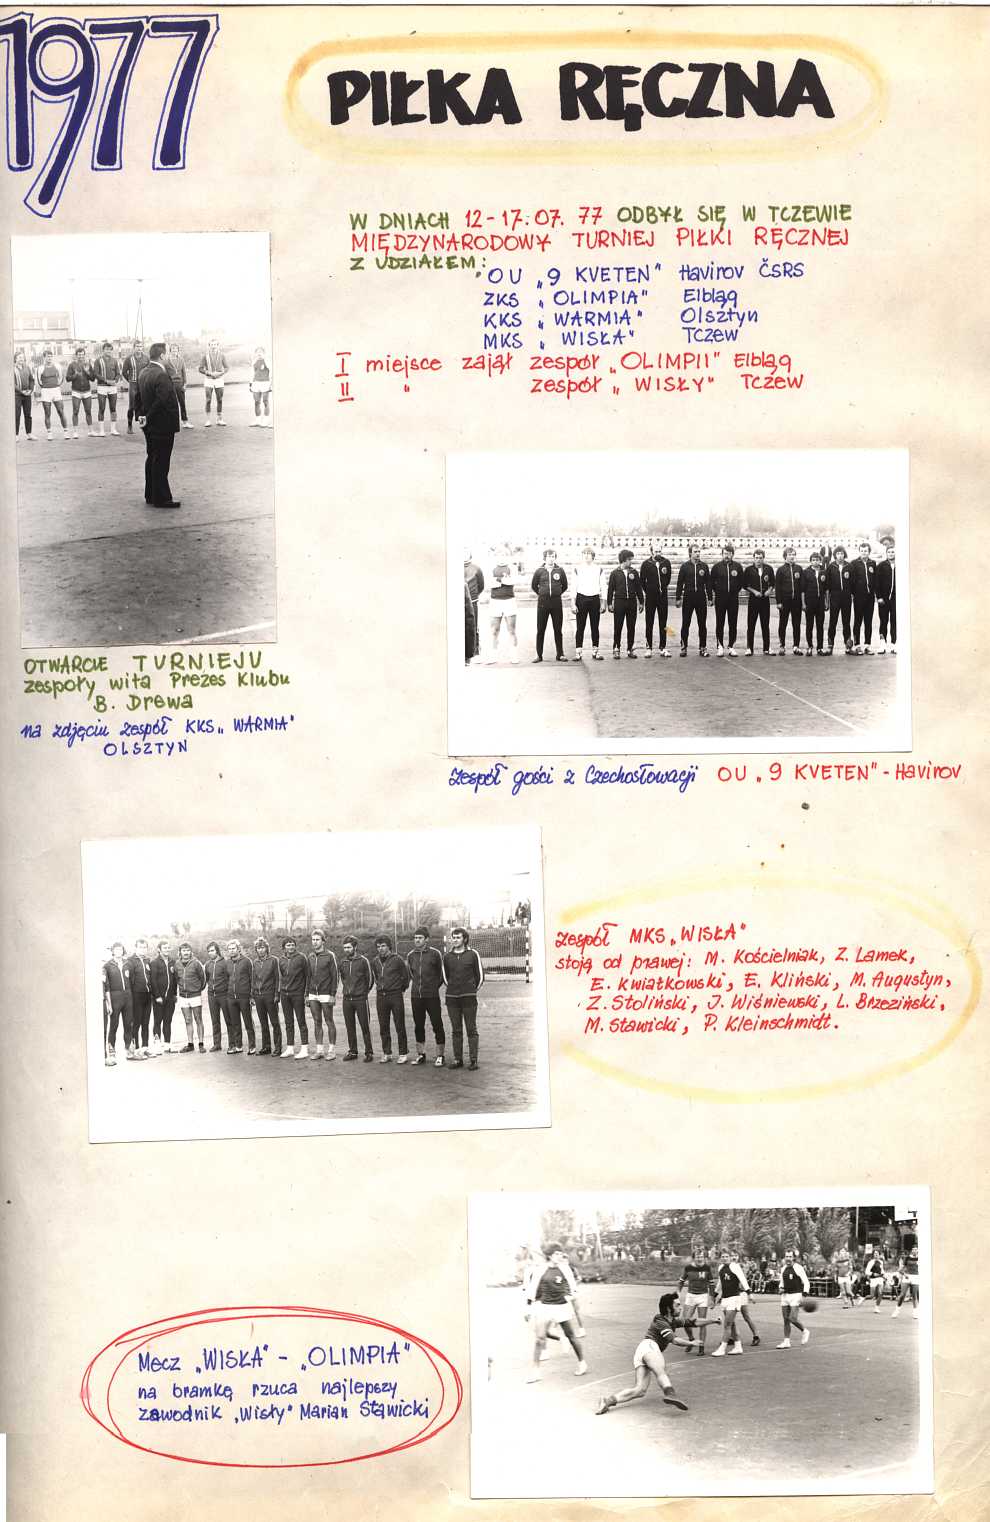 1977
PIŁKA RĘCZNA
W DNIACH 12-17.07.77 ODBYŁ SIĘ W TCZEWIE
MIĘDZYNARODOWY TURNIEJ PIŁKI RĘCZNEJ
Z UDZIAŁEM:
OU „9 KVETEN" Havirov ČSRS
ZKS „OLIMPIA" Elbląg
KKS „WARMIA" Olsztyn
MKS „WISŁA" Tczew
I miejsce zajął zespół „OLIMPII" Elbląg
II " zespół „WISŁY" Tczew
OTWARCIE TURNIEJU
zespoły wita Prezes Klubu
B. Drewa
na zdjęciu zespół KKS „WARMIA"
OLSZTYN
Zespół gości z Czechosłowacji OU „9 KVETEN" - Havirov
Zespół MKS „WISŁA"
stoją od prawej: M. Kościelniak, Z. Lamek,
E. Kwiatkowski, E. Kliński, M. Augustyn,
Z. Stoliński, J. Wiśniewski, L. Brzeziński,
M. Stawicki, P. Kleinschmidt.
Mecz „WISŁA" - „OLIMPIA"
na bramkę rzuca najlepszy
zawodnik „Wisły" Marian Stawicki